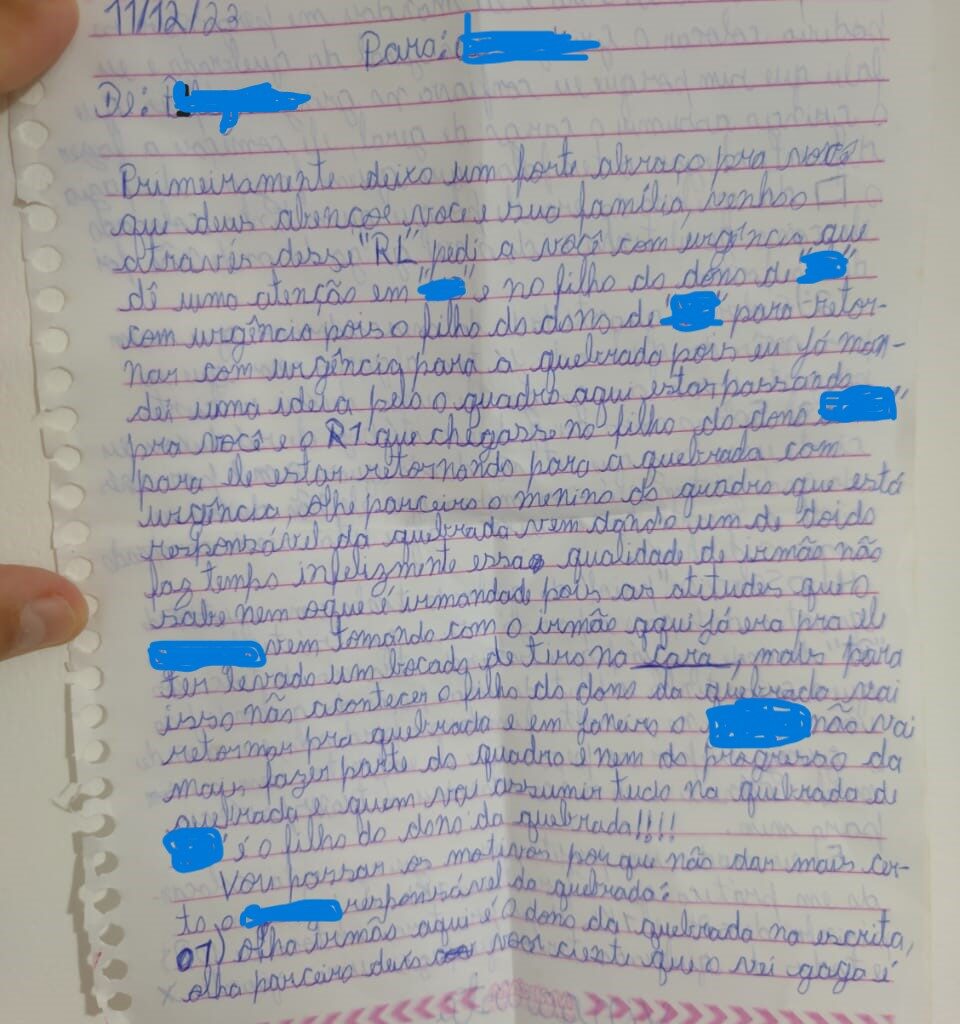 11/12/23
Para:
De:
Primeiramente deixo um forte abraço pra você
que deus abençoe você e sua família, venhoo
através desse "RL" pedi a você com urgência que
dê uma atenção em " " e no filho do dono de " "
com urgência pois o filho do dono de " " para retor-
nar com urgência para a quebrada pois eu já man-
dei uma ideia pelo o quadro aqui estar passando
pra você e o R1 que chegasse no filho do dono "
para ele estar retornando para a quebrada com
urgência, olhe parceiro o menino do quadro que está
responsável da quebrada vem dando um de doido
faz tempo infelizmente essa qualidade de irmão não
sabe nem oque é irmandade pois as atitudes que o
vem tomando com o irmão aqui já era pra el
ter levado um bocado de tiro na cara, mais para
isso não acontecer o filho do dono da quebrada vai
retornar pra quebrada e em janeiro o não vai
mais fazer parte do quadro e nem do progresso da
quebrada e quem vai assumir tudo na quebrada de
" é o filho do dono da quebrada!!!!
Vou passar os motivos por que não dar mais cer-
to, o responsável da quebrada:
01) olha irmão aqui é o dono da quebrada na escrita,
x olha parceiro deixo você ciente que o gaga é